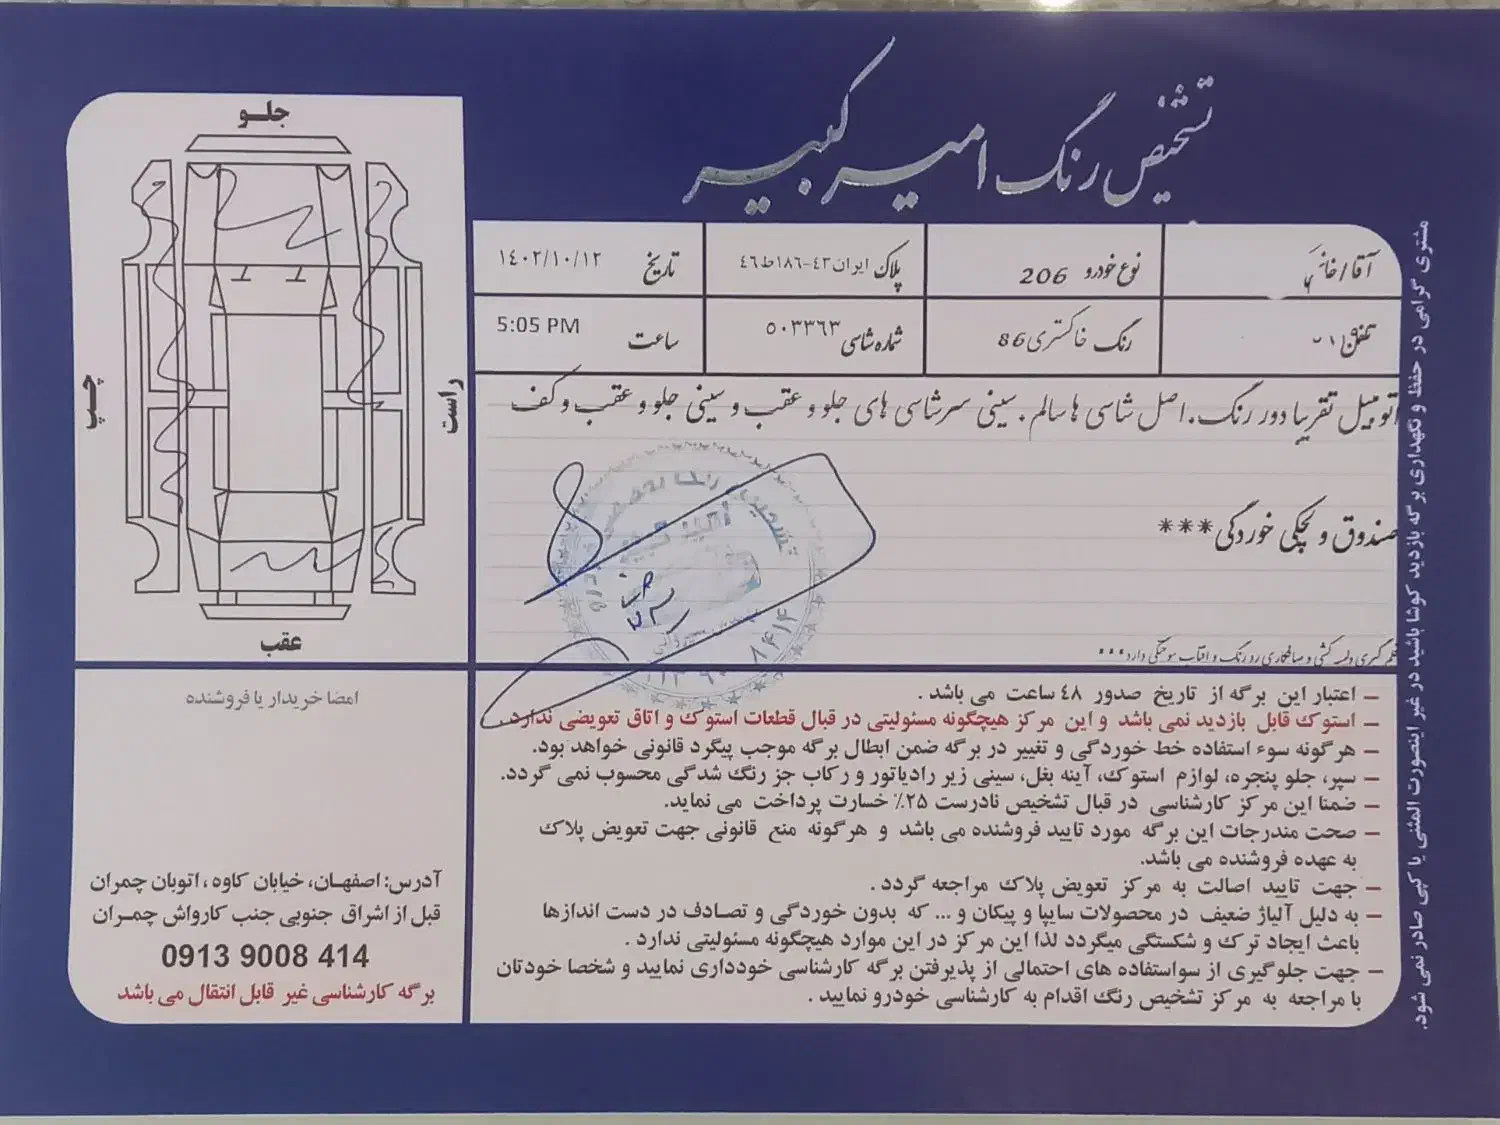 تشخیص رنگ امیر کبیر
آقا/خانم
نوع خودرو 206
پلاک ایران ۴۳-۱۸۶ط۴۶
تاریخ ۱۴۰۲/۱۰/۱۲
تلفن
رنگ خاکستری 86
شماره شاسی ۵۰۳۳۶۳
ساعت 5:05 PM
اتومبیل تقریبا دور رنگ. اصل شاسی ها سالم. سینی سرشاسی های جلو و عقب و سینی جلو و عقب و کف
صندوق و لچکی خوردگی***
لکه گیری و لیسه کشی و صافکاری رد رنگ و افتاب سوختگی دارد***
جلـو
چـپ
راست
عقب
– اعتبار این برگه از تاریخ صدور ۴۸ ساعت می باشد .
– استوک قابل بازدید نمی باشد و این مرکز هیچگونه مسئولیتی در قبال قطعات استوک و اتاق تعویضی ندارد .
– هرگونه سوء استفاده خط خوردگی و تغییر در برگه ضمن ابطال برگه موجب پیگرد قانونی خواهد بود.
– سپر، جلو پنجره، لوازم استوک، آینه بغل، سینی زیر رادیاتور و رکاب جز رنگ شدگی محسوب نمی گردد.
– ضمنا این مرکز کارشناسی در قبال تشخیص نادرست ۲۵٪ خسارت پرداخت می نماید.
– صحت مندرجات این برگه مورد تایید فروشنده می باشد و هرگونه منع قانونی جهت تعویض پلاک
به عهده فروشنده می باشد.
– جهت تایید اصالت به مرکز تعویض پلاک مراجعه گردد .
– به دلیل آلیاژ ضعیف در محصولات سایپا و پیکان و ... که بدون خوردگی و تصـادف در دست اندازها
باعث ایجاد ترک و شکستگی میگردد لذا این مرکز در این موارد هیچگونه مسئولیتی ندارد .
– جهت جلوگیری از سواستفاده های احتمالی از پذیرفتن برگه کارشناسی خودداری نمایید و شخصا خودتان
با مراجعه به مرکز تشخیص رنگ اقدام به کارشناسی خودرو نمایید .
امضا خریدار یا فروشنده
آدرس: اصفهـان، خیابان کاوه ، اتوبان چمران
قبل از اشراق جنوبی جنب کارواش چمـران
0913 9008 414
برگه کارشناسی غیر قابل انتقال می باشد
مشتری گرامی در حفظ و نگهداری برگه بازدید کوشا باشید در غیر اینصورت المثنی یا کپی صادر نمی شود.